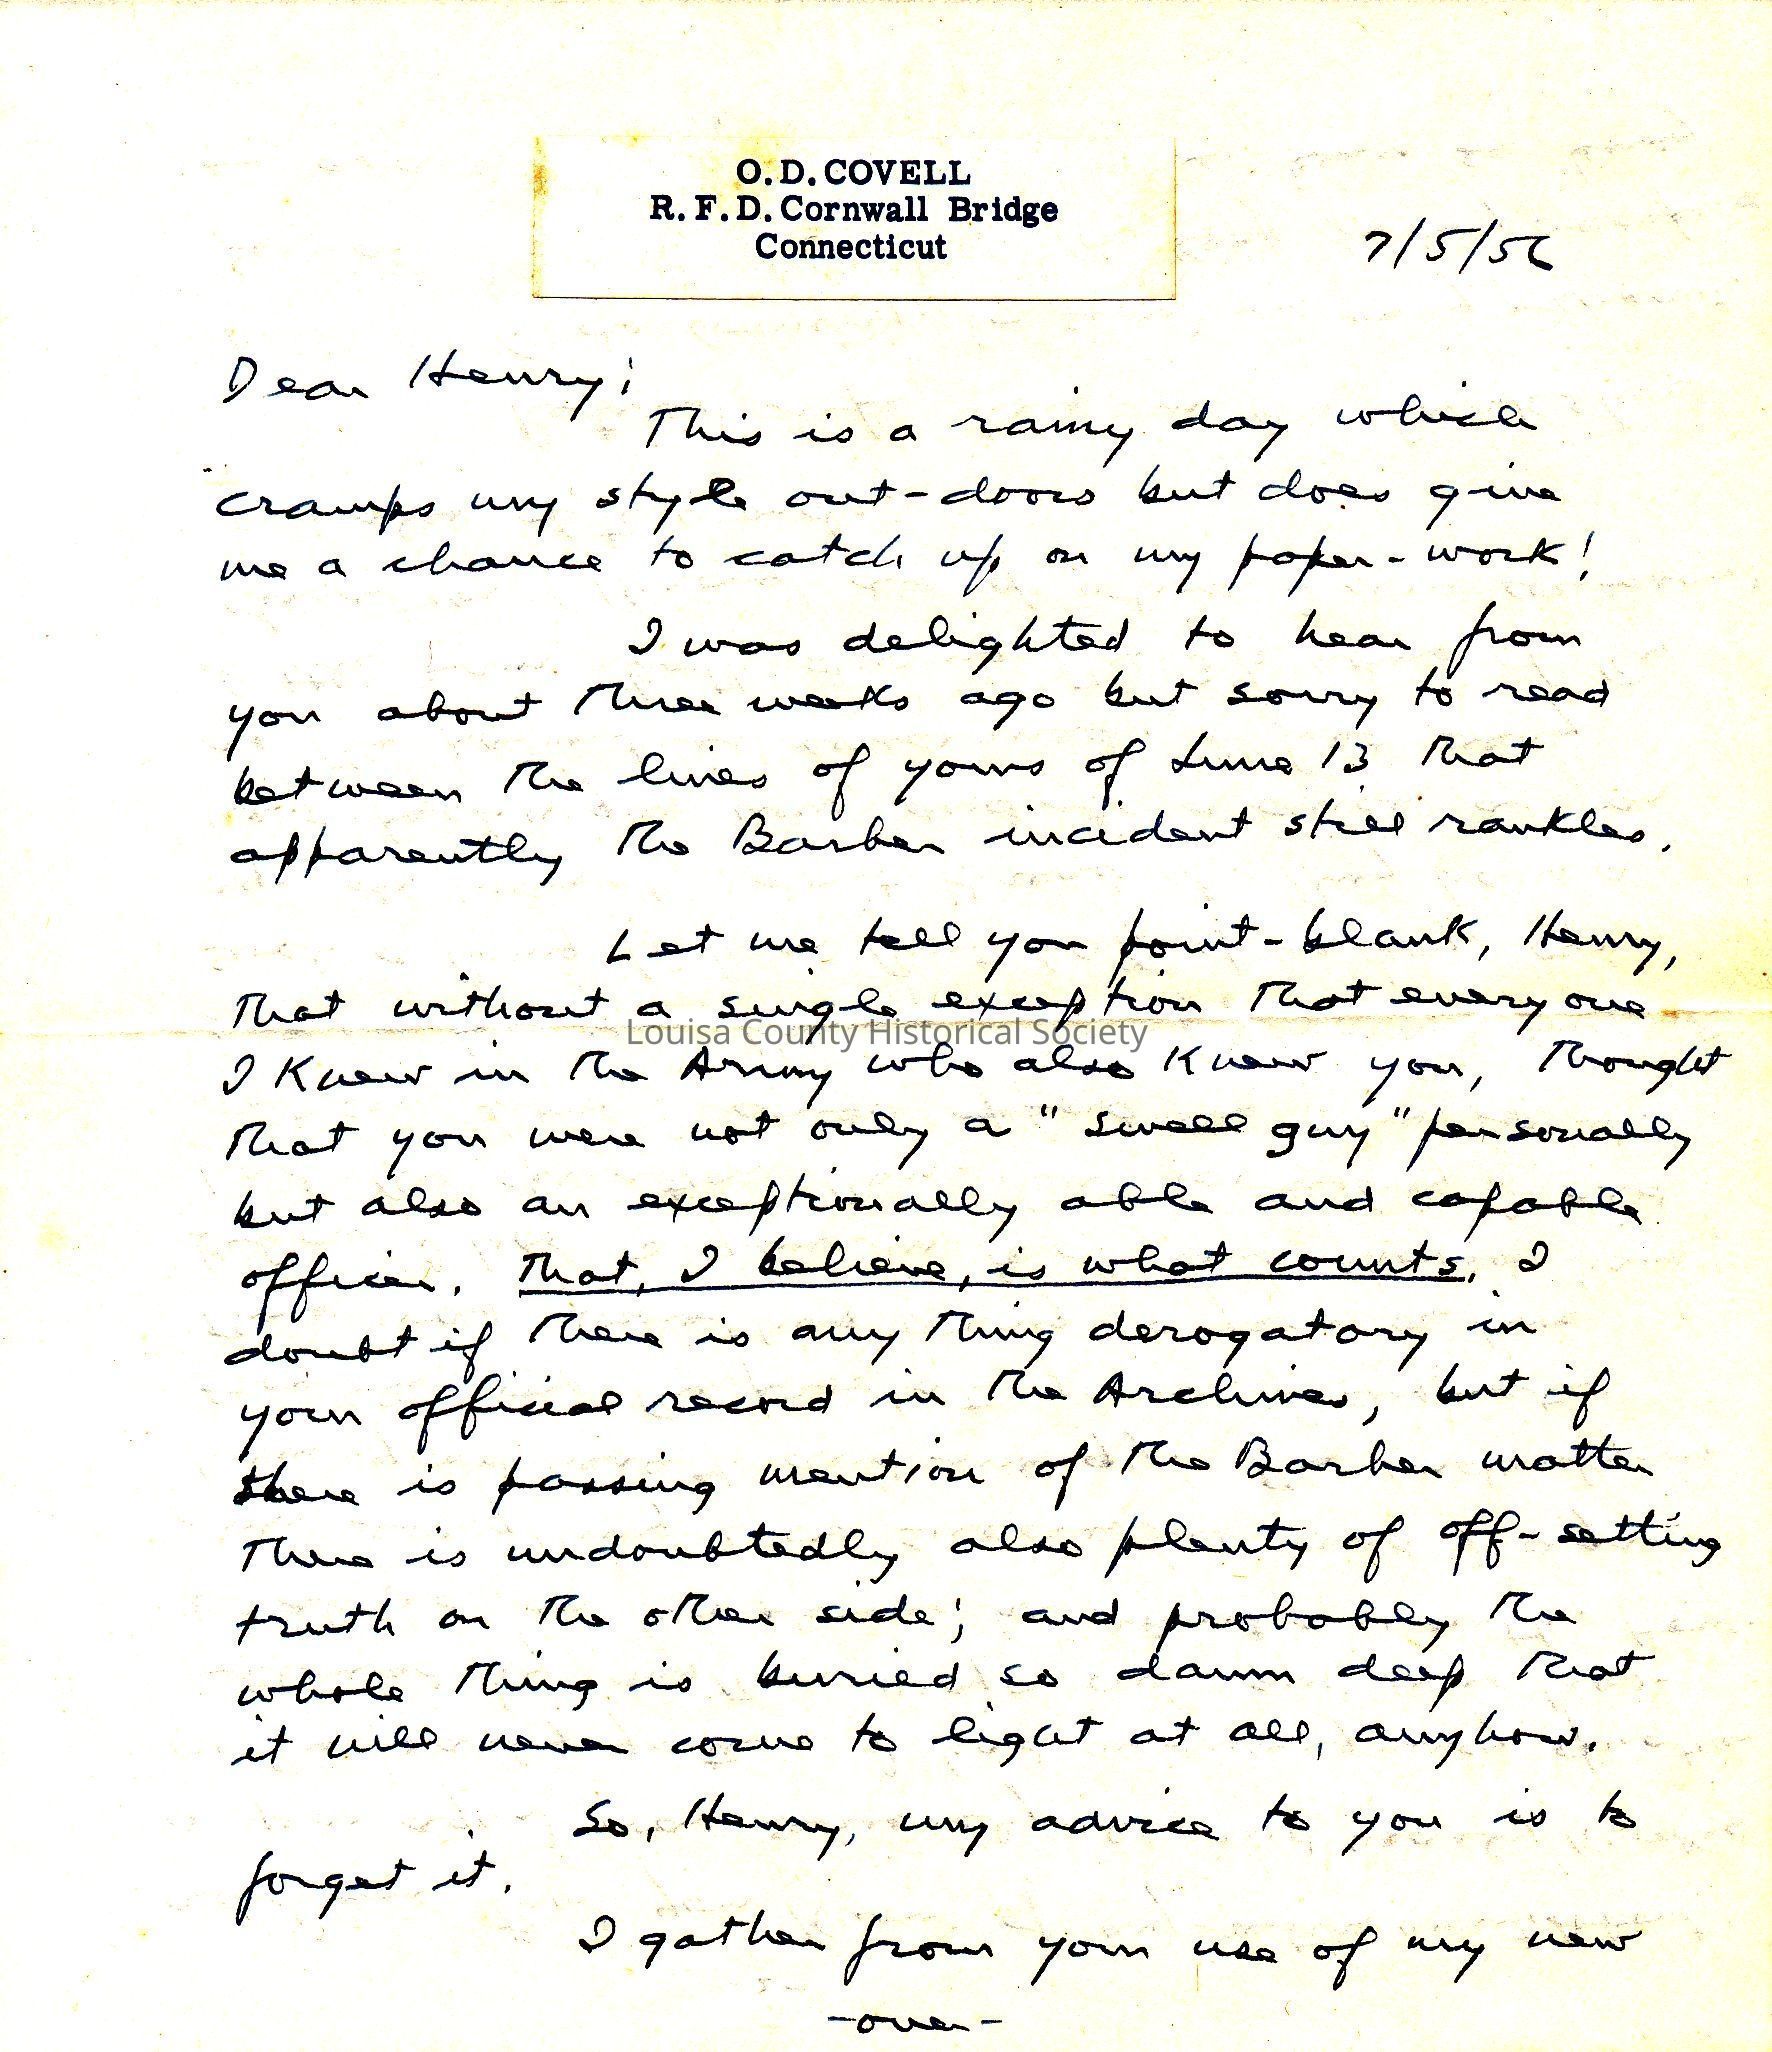 O. D. COVELL
R. F. D. Cornwall Bridge
Connecticut
7/5/56
Dear Henry;
This is a rainy day which
cramps my style out-doors but does give
me a chance to catch up on my paper-work!
I was delighted to hear from
you about three weeks ago but sorry to read
between the lines of yours of June 13 that
apparently the Barber incident still rankles.
Let me tell you point-blank, Henry,
that without a single exception that every one
Louisa County Historical Society
I knew in the Army who also knew you, thought
that you were not only a "swell guy" personally
but also an exceptionally able and capable
officer. That, I believe, is what counts. I
doubt if there is any thing derogatory in
your official record in the Archives, but if
there is passing mention of the Barber matter
there is undoubtedly also plenty of off-setting
truth on the other side; and probably the
whole thing is buried so damn deep that
it will never come to light at all, anyhow.
So, Henry, my advice to you is to
forget it.
I gather from your use of my new
-over-